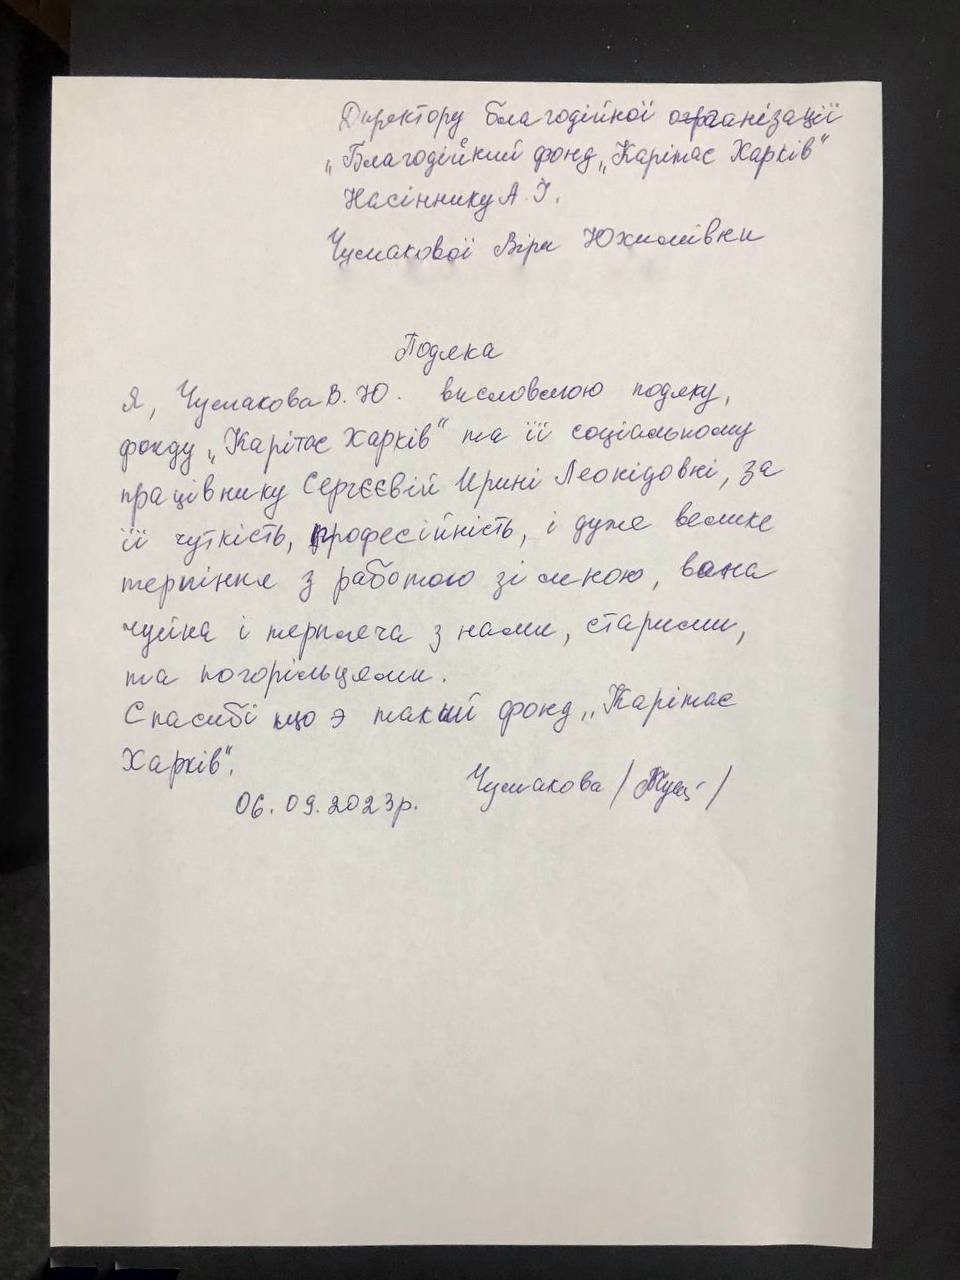 Директору благодійної організації
„Благодійний фонд „Карітас Харків"
Насіннику А. І.
Чумакової Віри Юхимівни
Подяка
Я, Чумакова В. Ю. висловлюю подяку,
фонду „Карітас Харків" та її соціальному
працівнику Сергєєвій Ирині Леонідовні, за
її чуткість, професійність, і дуже велике
терпіння з работою зі мною, вона
чуйна і терпляча з нами, старими,
та погорільцями.
Спасибі що э такий фонд „Карітас
Харків".
Чумакова /
06.09.2023р.